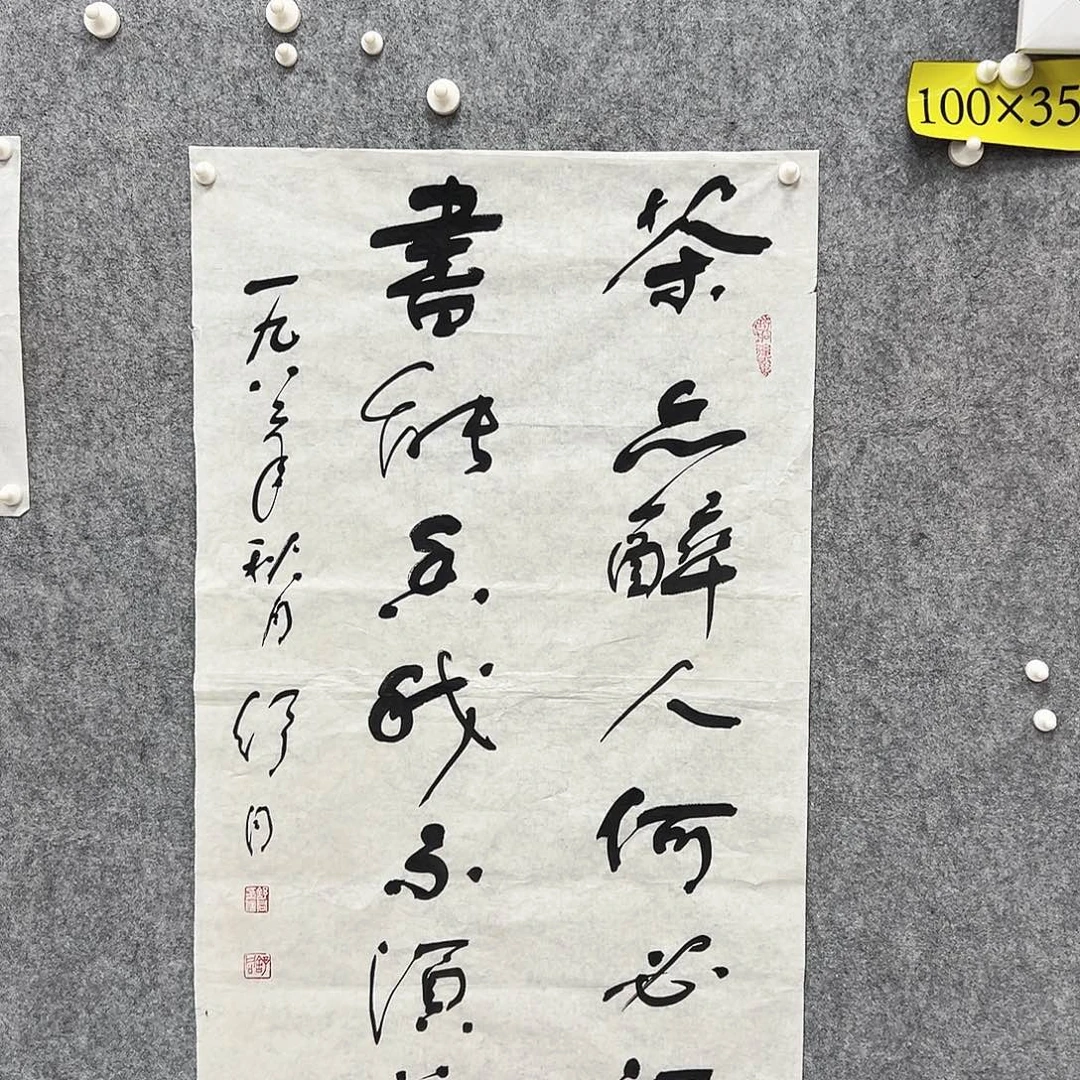 100×35
茶亦醉人何必
書能香我不須
一九八三年秋月 舒同